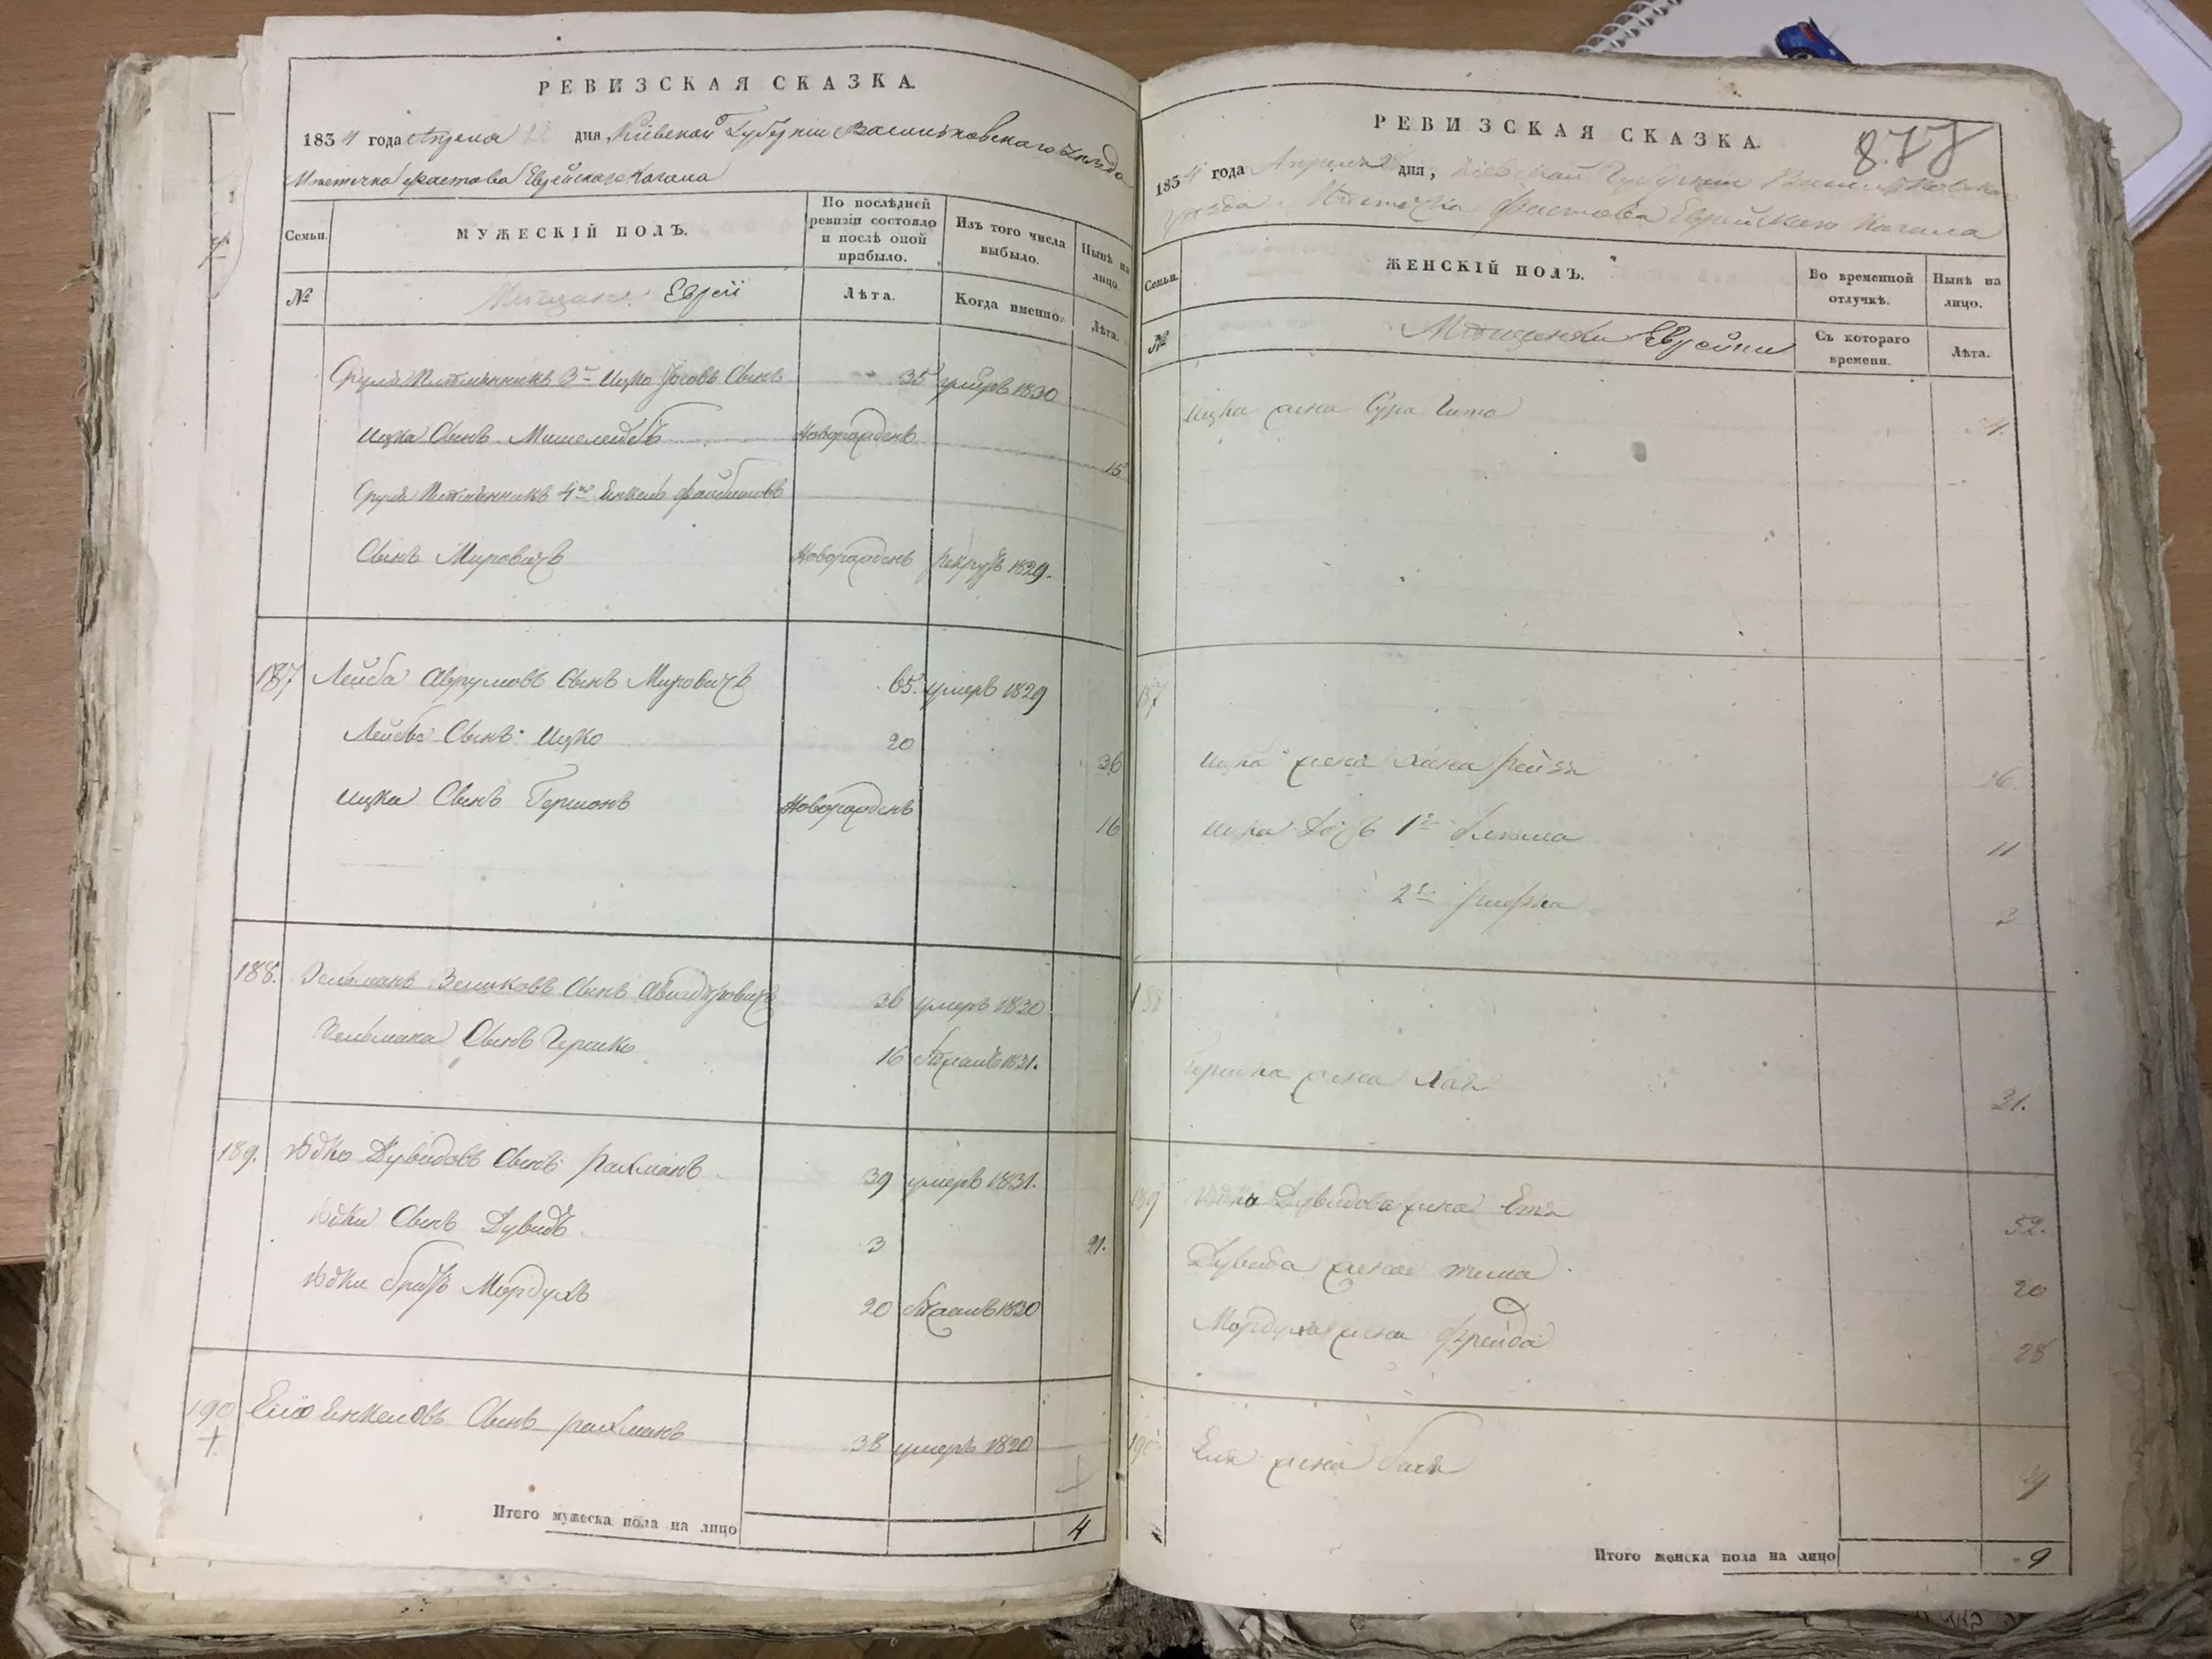 РЕВИЗСКАЯ СКАЗКА.
1834 года Апреля дня, Кіевской Губерніи Васильковского Уезда
Местечка Фастова Еврейскаго Кагала
Семьи.
МУЖЕСКІЙ ПОЛЪ.
По послѣдней ревизіи состояло и послѣ оной прибыло.
Изъ того числа выбыло.
Нынѣ на лицо.
№
Мещане Евреи
Лѣта.
Когда именно.
Лѣта.
Сруля Племянникъ 3й Ицко Іосовъ Сынъ 35 умеръ 1830
Ицка Сынъ Новорожденъ 15
Сруля Племянникъ 4й Янкель Файбишовъ
Сынъ Мировичъ Новорожденъ рекрутъ 1829.
187 Лейба Аврумовъ Сынъ Мировичъ 65. умеръ 1829
Лейбы Сынъ Ицко 20 36
Ицка Сынъ Гершонъ Новорожденъ 16
188. Зельманъ Сынъ Авигдоровичъ 36 умеръ 1830
Зельмана Сынъ Гершко 16 1831.
189. Юдко Дувидовъ Сынъ Рахманъ 39 умеръ 1831.
Юдки Сынъ Дувидъ 3 21.
Юдки братъ Мордухъ 20 1830
190 Еліо Янкеловъ Сынъ Рахманъ 38 умеръ 1820
Итого мужеска пола на лицо 4
РЕВИЗСКАЯ СКАЗКА.
877
1834 года Апреля дня, Кіевской Губерніи Васильковскаго
Уезда Местечка Фастова Еврейскаго Кагала
Семьи.
ЖЕНСКІЙ ПОЛЪ.
Во временной отлучкѣ.
Нынѣ на лицо.
№
Мещанки Еврейки
Съ котораго времени.
Лѣта.
Ицка жена Сура Гита
187
Ицка жена Хана Рейзя 36
Ицка Дочь 1я Блюма 11
2я Рифка 3
188
Гершка жена Хая 31.
189 Юдки Дувидова жена Етя 52.
Дувида жена 20
Мордуха жена Фрейда 28
190 Еля жена Бася
Итого женска пола на лицо 9